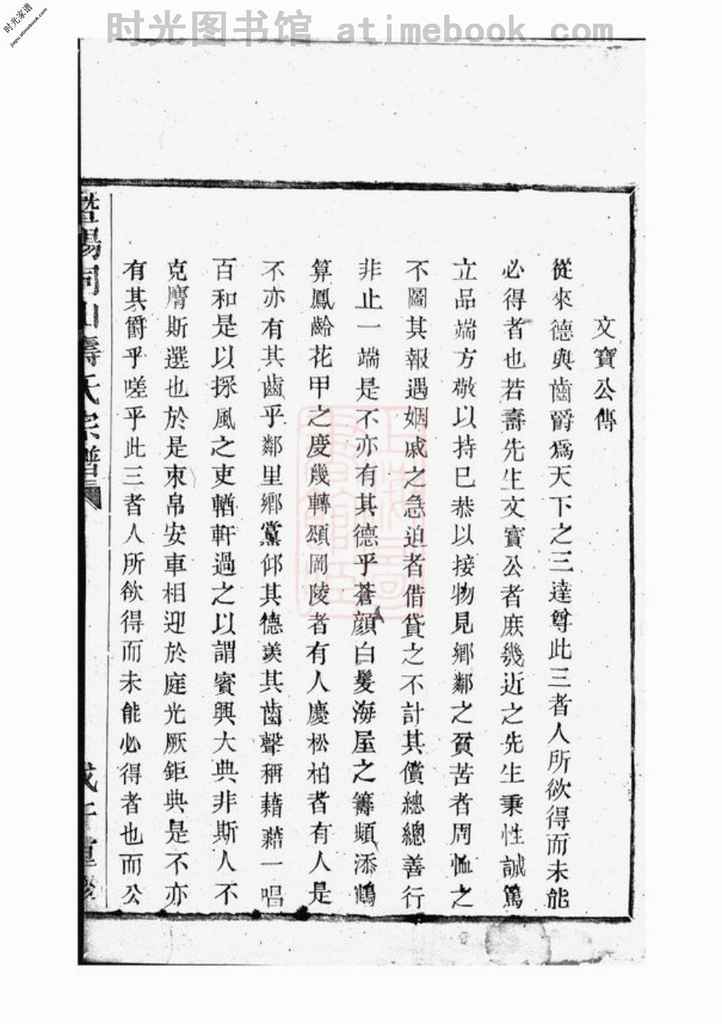 时光图书馆 atimebook.com
时光家谱
jiapu.atimebook.com
文寶公傳
從來德與齒爵爲天下之三達尊此三者人所欲得而未能
必得者也若壽先生文寶公者庶幾近之先生秉性誠篤
立品端方敬以持已恭以接物見鄉鄰之貧苦者周恤之
不圖其報遇姻戚之急迫者借貸之不計其償總總善行
非止一端是不亦有其德乎蒼顔白髮海屋之籌頻添鶴
算鳳齡花甲之慶幾轉頌岡陵者有人慶松柏者有人是
不亦有其齒乎鄰里鄉黨仰其德羨其齒聲稱藉藉一唱
百和是以採風之吏輶軒過之以謂賓興大典非斯人不
克膺斯選也於是束帛安車相迎於庭光厥鉅典是不亦
有其爵乎嗟乎此三者人所欲得而未能必得者也而公
暨陽同山壽氏宗譜
戊午重